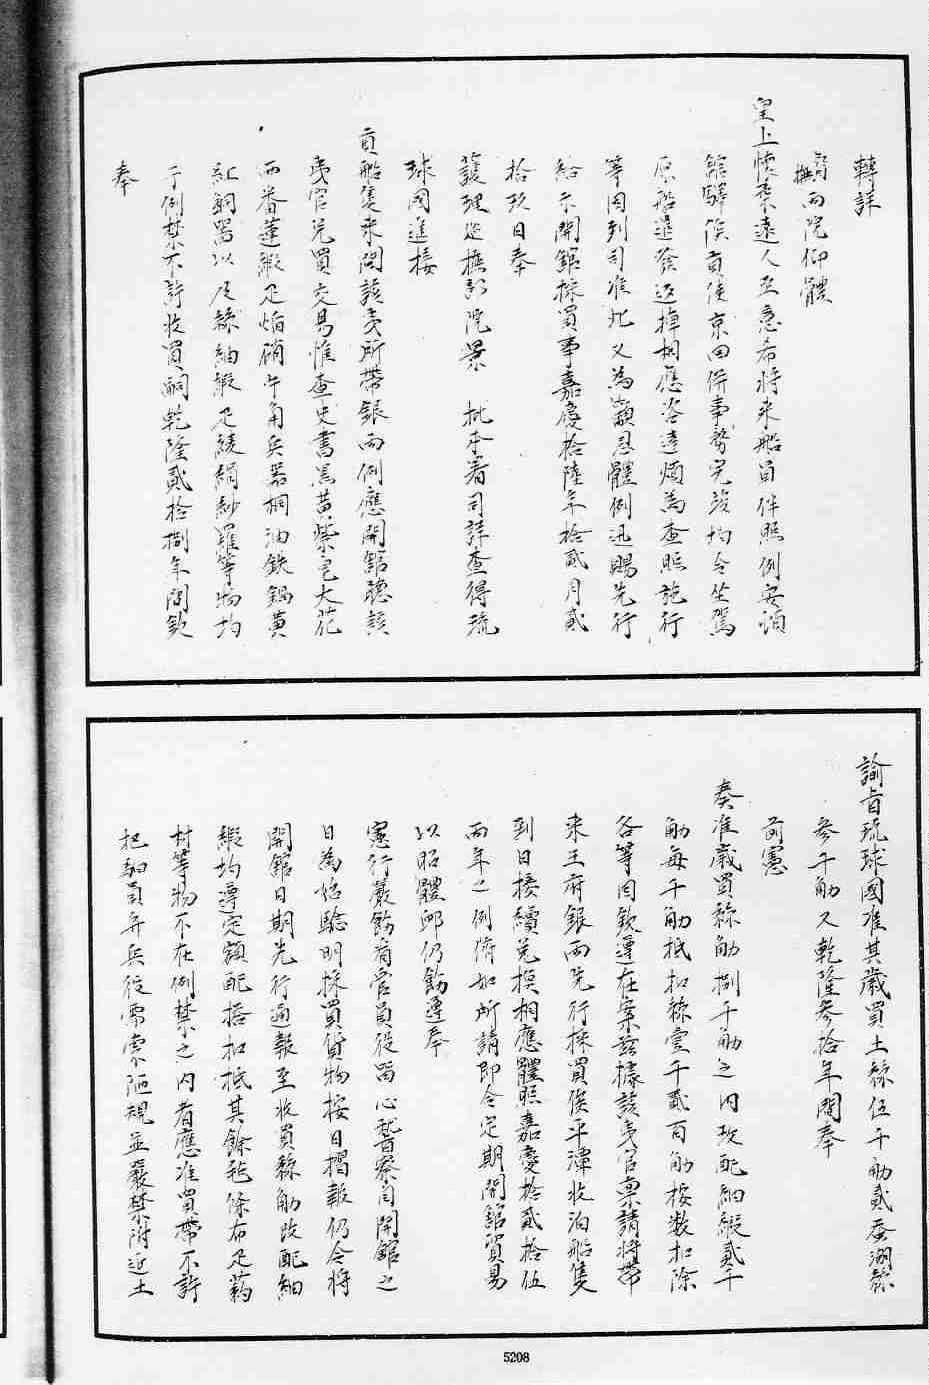 轉詳
督撫兩院仰體
皇上懷柔遠人至意希將來船員伴照例安頓
館驛俟貢使京回併事務完竣均令坐駕
原船遣發返棹相應咨達煩為查照施行
等因到司准此又為籲恩體例迅賜先行
給示開館採買事嘉慶拾陸年拾貳月貳
拾玖日奉
護理巡撫部院景 批本署司詳查得琉
球國進接
貢船隻来閩該夷所帶銀兩例應開館聽該
夷官兌買交易惟查史書黑黃紫皂大花
西番蓮緞疋焰硝牛角兵器桐油鉄鍋黃
紅銅器以及絲紬緞疋綾絹紗羅等物均
于例禁不許收買嗣乾隆貳拾捌年間欽
奉
諭旨琉球國准其歲買土絲伍千觔貳蚕湖絲
參千觔又乾隆參拾年間奉
前憲
奏准歲買絲觔捌千觔之内改配紬緞貳千
觔每千觔抵扣絲壹千貳百觔按数扣除
各等因欽遵在案茲據該夷官禀請將帶
来王府銀兩先行採買俟平潭收泊船隻
到日接續兌換相應體照嘉慶拾貳拾伍
兩年之例俯如所請即令定期開館貿易
以昭體邮仍飭遵奉
憲行嚴飭省官員役留心訾察自開館之
日為始驗明採買貨物按日摺報仍令將
開館日期先行通報至收買絲觔改配紬
緞均遵定額配搭扣抵其餘毡條布疋葯
材等物不在例禁之内者應准買帶不許
把軸員弁兵役需索陋規並嚴禁附近土
5208